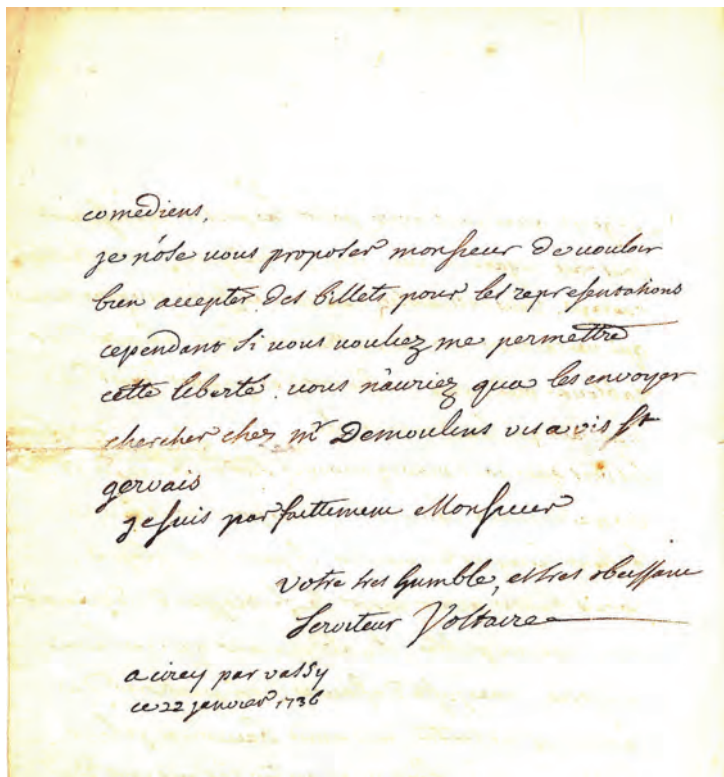 comediens,
je n'ose vous proposer monsieur de vouloir
bien accepter des billets pour les representations
cependant si vous vouliez me permettre
cette liberté. vous n'auriez qua les envoyer
chercher chez mr Demoulins vis a vis st
gervais
je suis parfaittement Monsieur
votre tres humble, et tres obeissant
serviteur Voltaire
a cirey par vassy
ce 22 janvier 1736